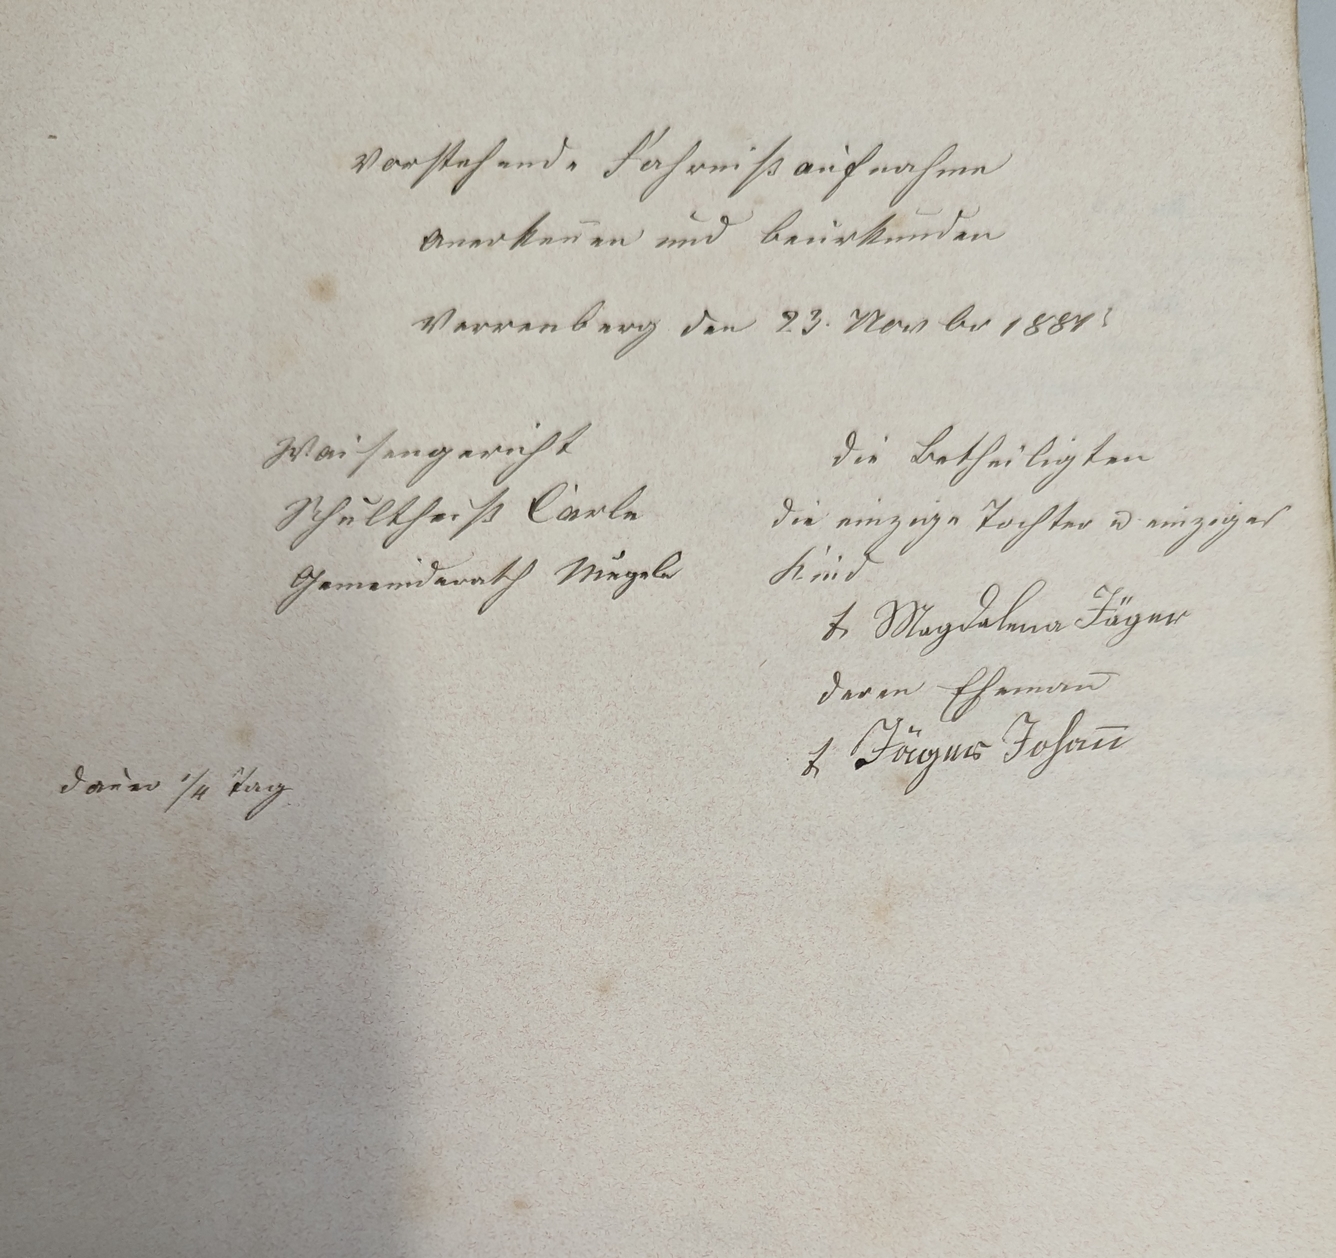 Vorstehende Fahrnißaufnahme
anerkeñen und beurkunden
Verrenberg den 23. Novbr 1881
Waisengericht
Schultheiß Carle
Gemeinderath Mugele
die Betheiligten
die einzige Tochter u. einziges
Kind
t. Magdalena Jäger
deren Ehemañ
t. Jäger Johañ
Dauer 1/4 Tag